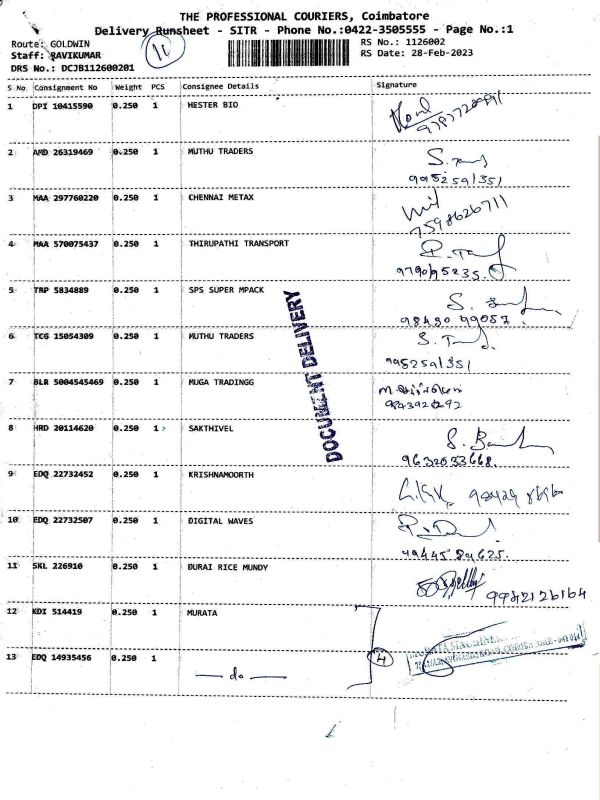 THE PROFESSIONAL COURIERS, Coimbatore
Delivery Runsheet - SITR - Phone No.:0422-3505555 - Page No.:1
Route: GOLDWIN RS No.: 1126002
Staff: RAVIKUMAR RS Date: 28-Feb-2023
DRS No.: DCJB112600201
S No Consignment No Weight PCS Consignee Details Signature
1 DPI 10415590 0.250 1 HESTER BIO
2 AMD 26319469 0.250 1 MUTHU TRADERS
9952591351
3 MAA 297760220 0.250 1 CHENNAI METAX
7598626711
4 MAA 570075437 0.250 1 THIRUPATHI TRANSPORT
9790195235
5 TRP 5834889 0.250 1 SPS SUPER MPACK
98430 99057.
6 TCG 15054309 0.250 1 MUTHU TRADERS
9952591351
7 BLR 5004545469 0.250 1 MUGA TRADINGG
8 HRD 20114620 0.250 1 SAKTHIVEL
9632033668.
9 EDQ 22732452 0.250 1 KRISHNAMOORTH
10 EDQ 22732507 0.250 1 DIGITAL WAVES
99445 89625.
11 SKL 226910 0.250 1 DURAI RICE MUNDY
9982126164
12 KDI 514419 0.250 1 MURATA
13 EDQ 14935456 0.250 1 — do —
4
DOCUMENT DELIVERY